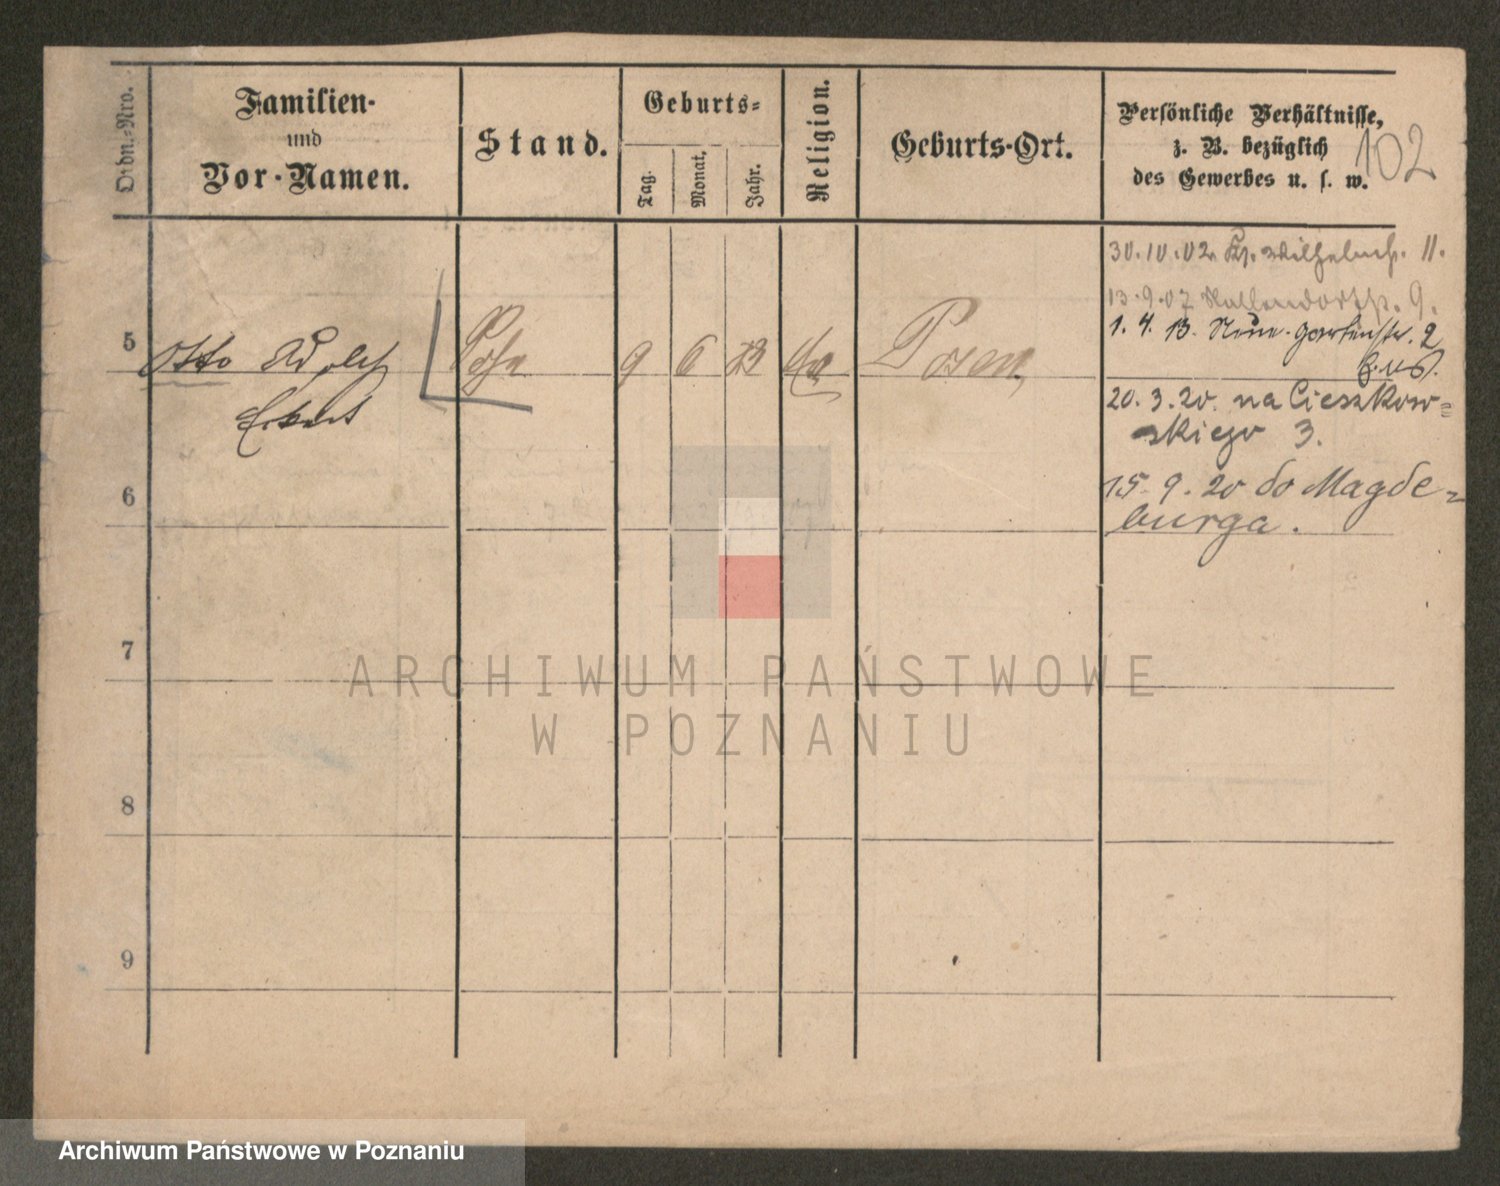 Ordn.-Nro.
Familien-
und
Vor-Namen.
Stand.
Geburts-
Tag.
Monat.
Jahr.
Religion.
Geburts-Ort.
Persönliche Verhältnisse,
z. B. bezüglich
des Gewerbes u. s. w.
102
30.10.02. Wilhelmst. 11.
13.9.07 9.
1.4.13. Neue Gartenstr. 2
5 Otto Adolf Sohn 9 6 Posen
Eckert
20.3.20. na Cieszkow=
skiego 3.
6
15.9.20 do Magde=
burga.
7
8
9
ARCHIWUM PAŃSTWOWE
W POZNANIU
Archiwum Państwowe w Poznaniu